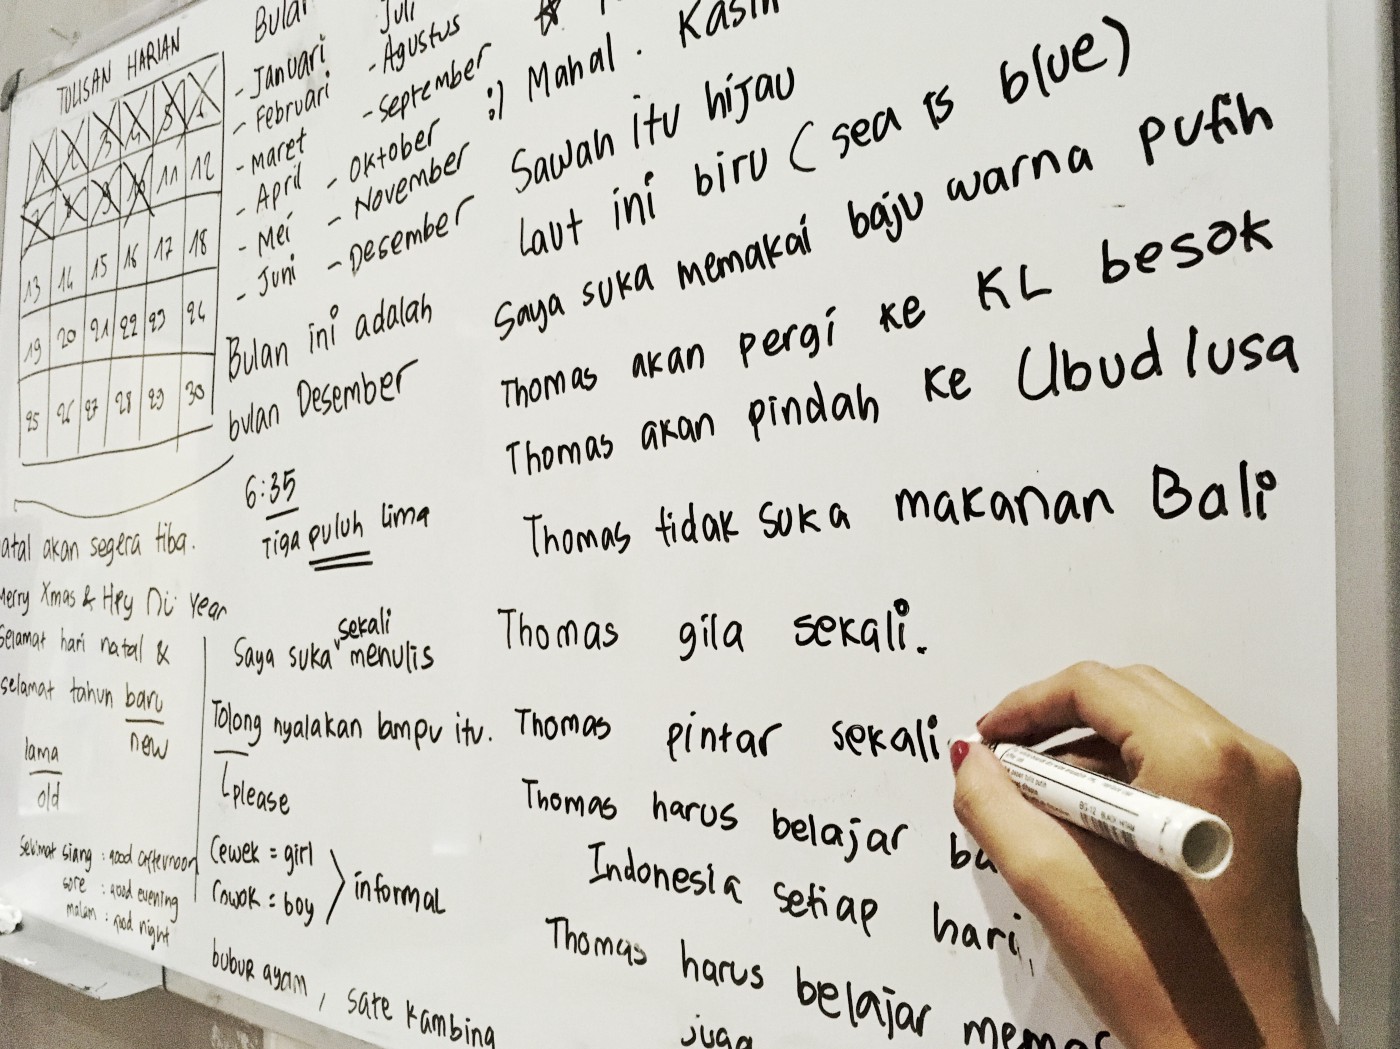 TULISAN HARIAN
1 2 3 4 5 6
7 8 9 10 11 12
13 14 15 16 17 18
19 20 21 22 23 24
25 26 27 28 29 30
atal akan segera tiba.
Merry Xmas & Hpy Year
selamat hari natal &
selamat tahun baru
new
lama
old
siang : good afternoon
sore : good evening
malam : good night
- Januari
- Februari
- Maret
- April
- Mei
- Juni
Juli
- Agustus
- September
- Oktober
- November
- Desember
Bulan ini adalah
bulan Desember
6:35
Tiga puluh lima
Saya suka sekali menulis
Tolong nyalakan lampu itu.
please
Cewek = girl
Cowok = boy
informal
bubur ayam, sate kambing
:) Mahal. Kasih
Sawah itu hijau
Laut ini biru (sea is blue)
Saya suka memakai baju warna putih
Thomas akan pergi ke KL besok
Thomas akan pindah ke Ubud lusa
Thomas tidak suka makanan Bali
Thomas gila sekali.
Thomas pintar sekali
Thomas harus belajar ba
Indonesia setiap hari,
Thomas harus belajar memas
juga
BG-12